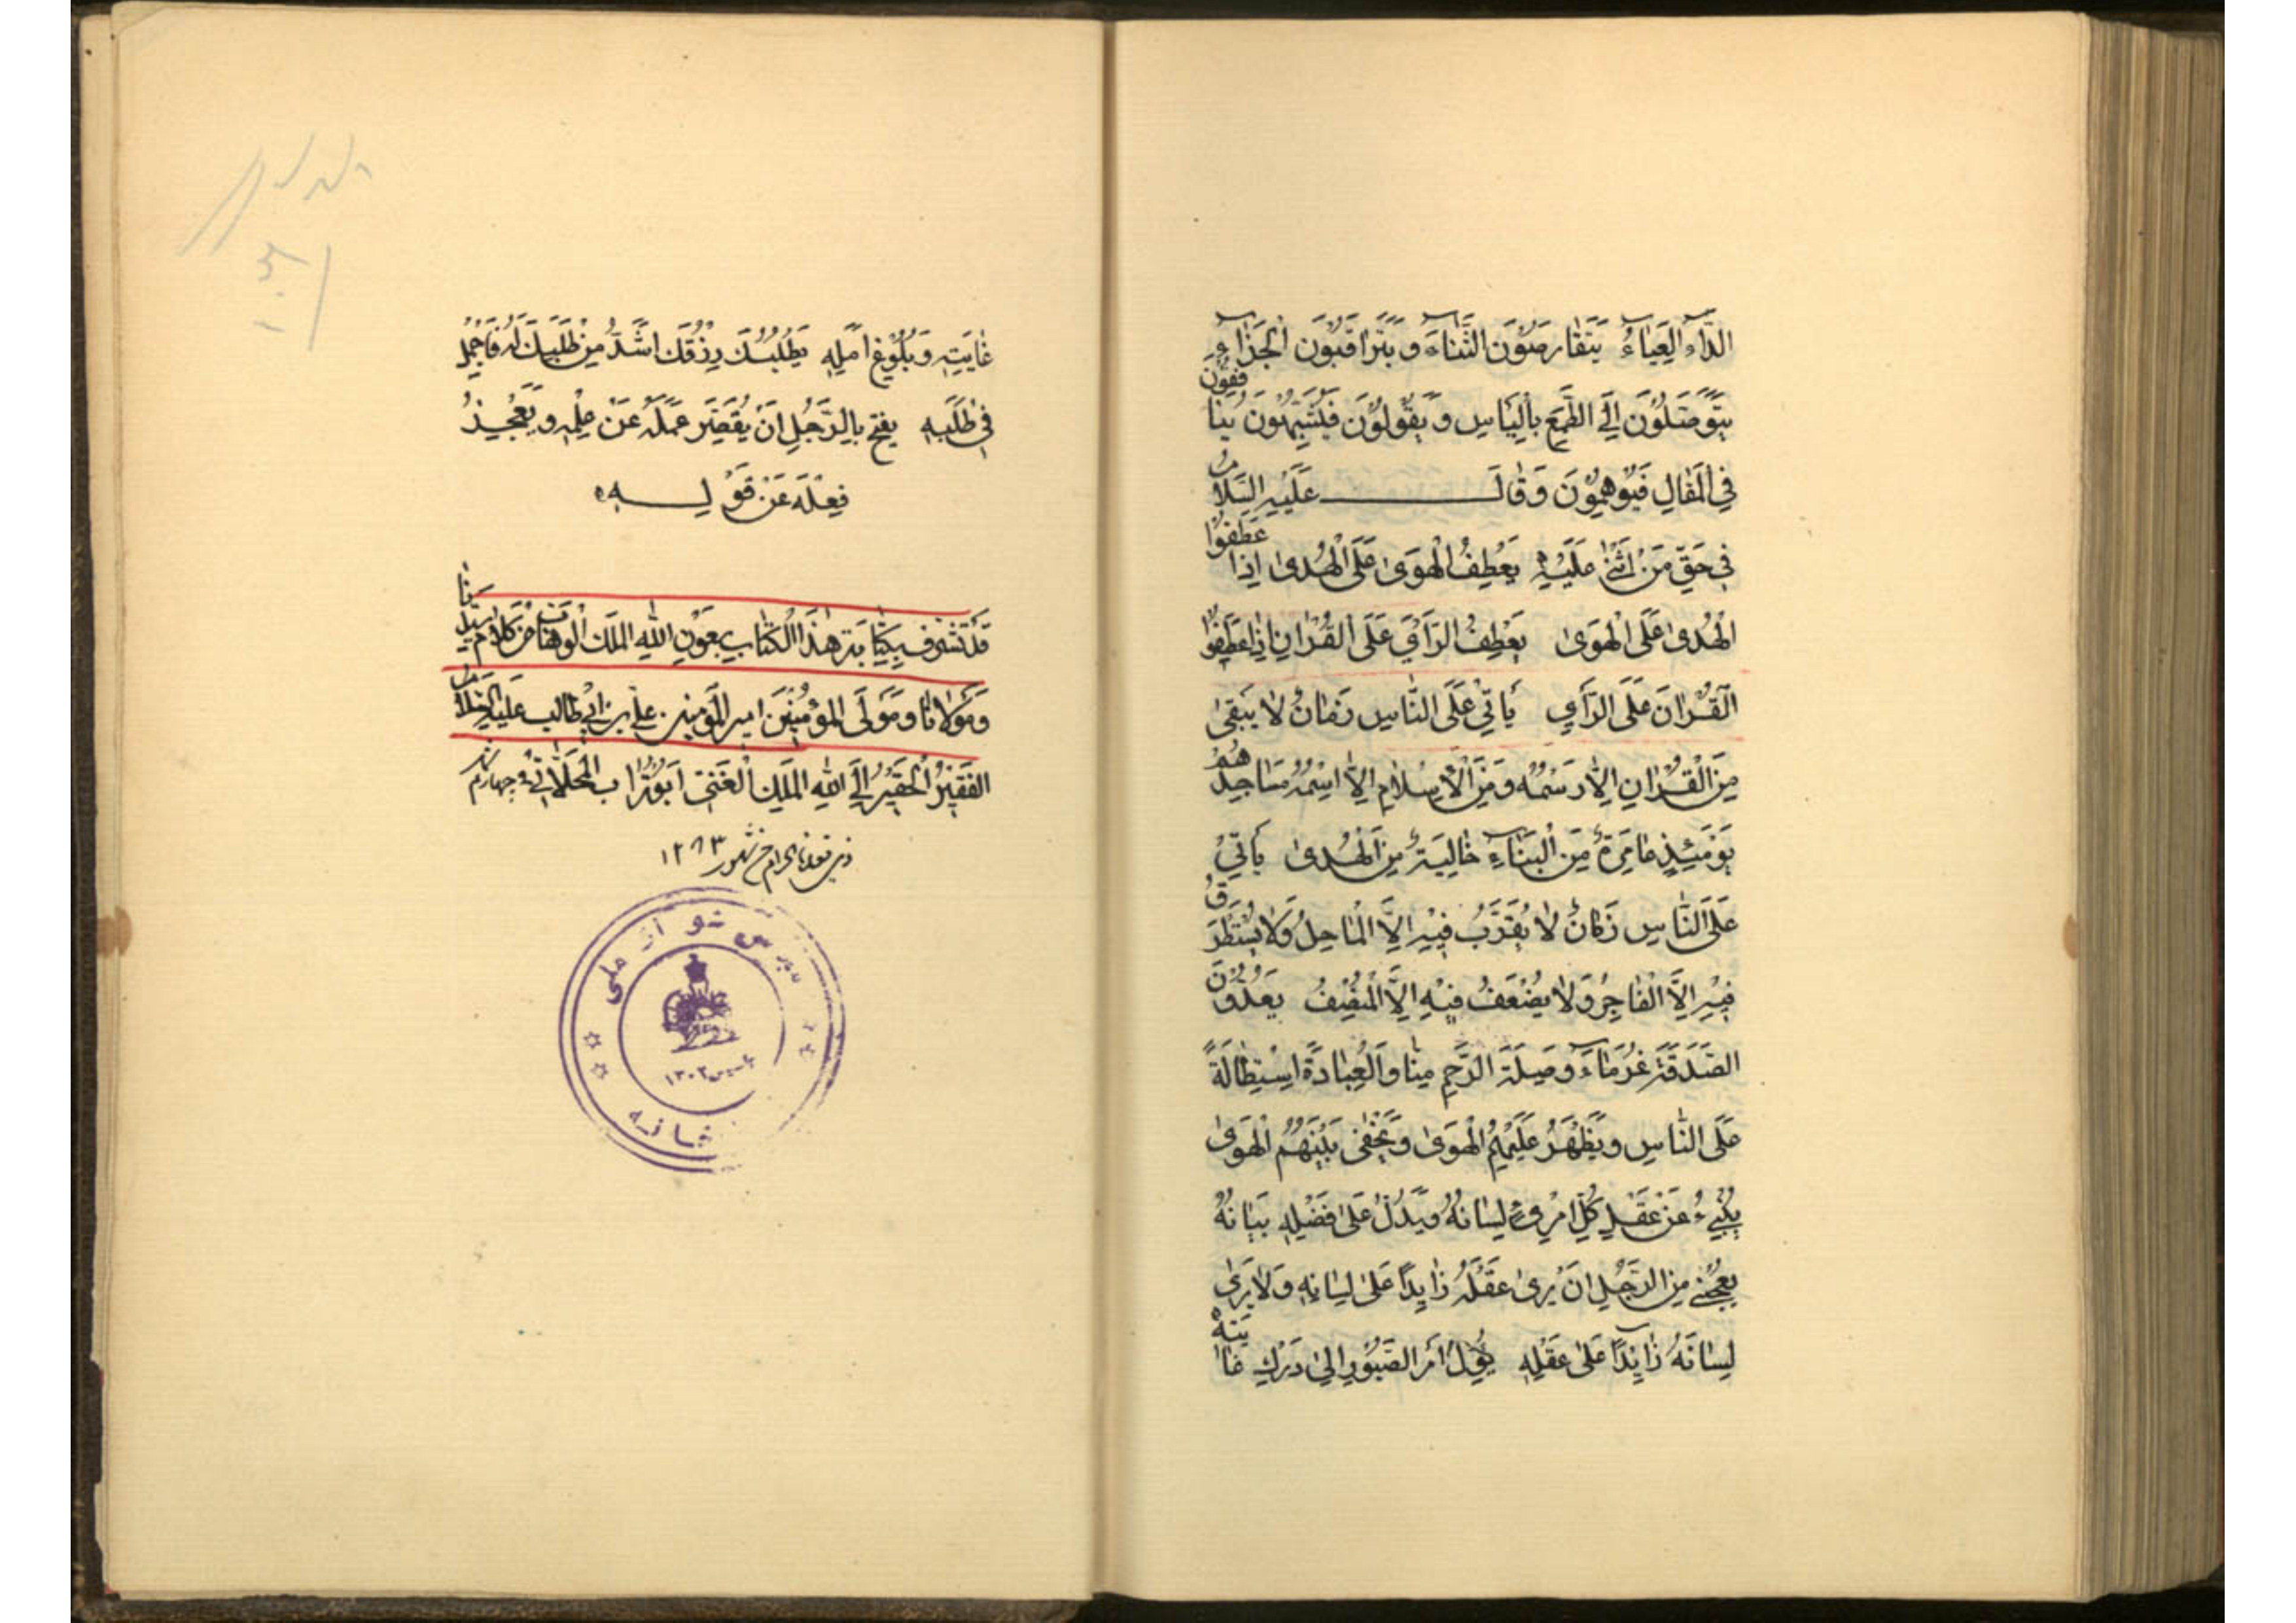 الدَّاءُ العَيَاءُ يَتَقَارَضُونَ الثَّنَاءَ وَ يَتَرَاقَبُونَ الْجَزَاءَ
يَتَوَصَّلُونَ إِلَى الطَّمَعِ بِالْيَأسِ وَ يَقُولُونَ فَيُشَبِّهُونَ يُنَافِقُونَ
فِي الْمَقَالِ فَيُوهِمُونَ وَ قَالَ عَلَيْهِ السَّلَامُ
فِي حَقِّ مَنْ اَثْنَى عَلَيْهِ يَعْطِفُ الْهَوَى عَلَى الْهُدَى اِذَا عَطَفُوا
الْهُدَى عَلَى الْهَوَى يَعْطِفُ الرَّأْيَ عَلَى الْقُرْانِ اِذَا عَطَفُوا
الْقُرْانَ عَلَى الرَّأْيِ يَأتِي عَلَى النَّاسِ زَمَانٌ لَا يَبْقَى
مِنَ الْقُرْانِ اِلَّا رَسْمُهُ وَ مِنَ الْاِسْلَامِ اِلَّا اسْمُهُ مَسَاجِدُهُمْ
يَوْمَئِذٍ عَامِرَةٌ مِنَ الْبِنَاءِ خَالِيَةٌ مِنَ الْهُدَى يَأتِي
عَلَى النَّاسِ زَمَانٌ لَا يُقَرَّبُ فِيهِ اِلَّا الْمَاحِلُ وَ لَا يُسْتَظْرَفُ
فِيهِ اِلَّا الْفَاجِرُ وَ لَا يُضَعَّفُ فِيهِ اِلَّا الْمُنْصِفُ يَعُدُّونَ
الصَّدَقَةَ غُرْمًا وَ صِلَةَ الرَّحِمِ مَنًّا وَ الْعِبَادَةَ اسْتِطَالَةً
عَلَى النَّاسِ وَ يَظْهَرُ عَلَيْهِمُ الْهَوَى وَ يَخْفَى بَيْنَهُمُ الْهَوَى
يُنْبِیءُ عَنْ عَقْلِ كُلِّ امْرِیءٍ لِسَانُهُ وَ يَدُلُّ عَلَى فَضْلِهِ بَيَانُهُ
يُعْجِبُنِي مِنَ الرَّجُلِ اَنْ يُرَى عَقْلُهُ زَايِدًا عَلَى لِسَانِهِ وَ لَا يُرَى
لِسَانُهُ زَايِدًا عَلَى عَقْلِهِ يَؤُلُ اَمْرُ الصَّبُورِ اِلَى دَرَكِ غَايَتِهِ
غَايَتِهِ وَ بُلُوغِ اَمَلِهِ يَطْلُبُكَ رِزْقُكَ اَشَدُّ مِنْ طَلَبِكَ لَهُ فَاَجْمِلْ
فِي طَلَبِهِ يَقْبَحُ بِالرَّجُلِ اَنْ يُقَصِّرَ عَمَلُهُ عَنْ عِلْمِهِ وَ يَعْجِزُ
فِعْلُهُ عَنْ قَوْلِهِ
قَدْ تَشَرَّفَ بِكِتَابَةِ هٰذَا الْكِتَابِ بِعَوْنِ اللّٰهِ الْمَلِكِ الْوَهَّابِ مِنْ كَلَامِ سَيِّدِنَا
وَ مَوْلَانَا وَ مَوْلَى الْمُؤْمِنِينَ امير المؤمنين علي بن ابي طالب عليه السلام
الْفَقِيرُ الْحَقِيرُ اِلَى اللّٰهِ الْمَلِكِ الْغَنِيِّ اَبُو تُرَاب الْمَحَلَّاتِي في چهاردهم
ذي قعدة الحرام من شهور ١٢٨٣
مجلس شورای ملی
تاسیس ١٣٠٢
کتابخانه